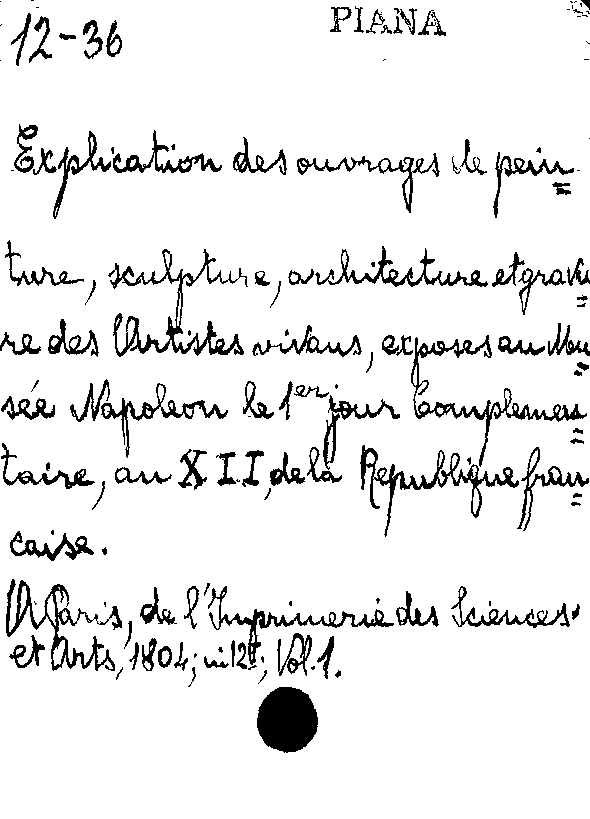 PIANA
12-36
Explication des ouvrages de pein=
ture, sculpture, architecture et gravu=
re des Artistes vivans, exposes au Mu=
sée Napoleon le 1er jour Complemen=
taire, an XII, de la Republique fran=
caise.
A Paris, de l'Imprimerie des Sciences
et Arts, 1804; in 12º; Vol. 1.